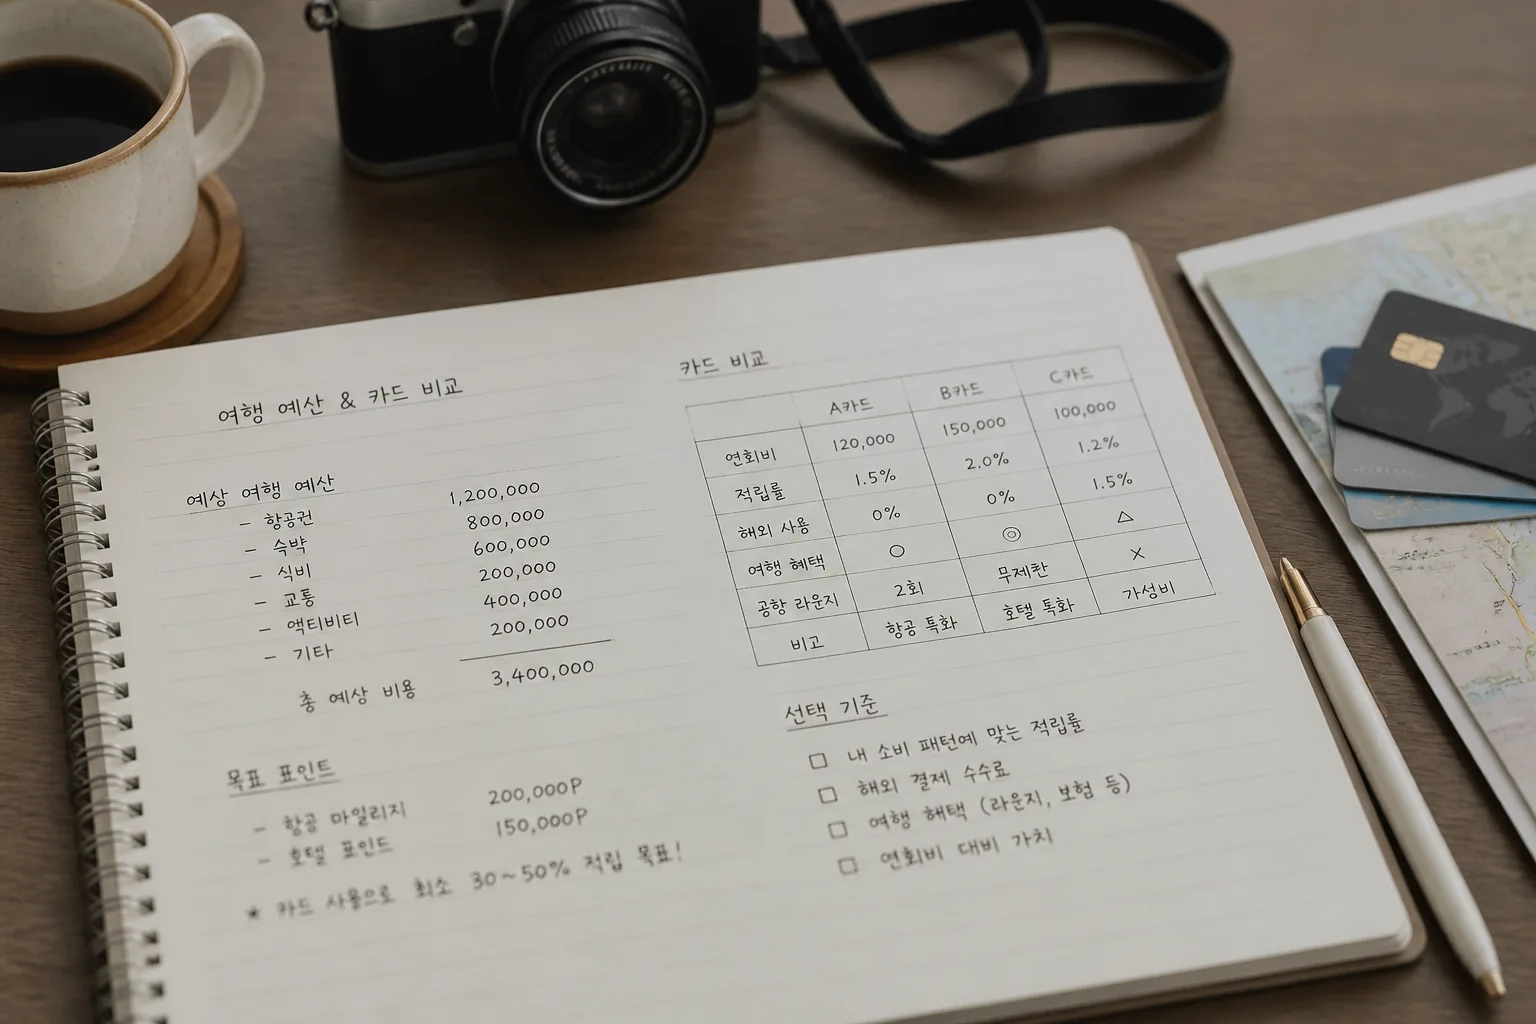 여행 예산 & 카드 비교
예상 여행 예산 1,200,000
- 항공권 800,000
- 숙박 600,000
- 식비 200,000
- 교통 400,000
- 액티비티 200,000
- 기타
총 예상 비용 3,400,000
목표 포인트
- 항공 마일리지 200,000P
- 호텔 포인트 150,000P
★ 카드 사용으로 최소 30~50% 적립 목표!
카드 비교
A카드 B카드 C카드
연회비 120,000 150,000 100,000
적립률 1.5% 2.0% 1.2%
해외 사용 0% 0% 1.5%
여행 혜택 ○ ◎ △
공항 라운지 2회 무제한 X
비고 항공 특화 호텔 특화 가성비
선택 기준
□ 내 소비 패턴에 맞는 적립률
□ 해외 결제 수수료
□ 여행 혜택 (라운지, 보험 등)
□ 연회비 대비 가치